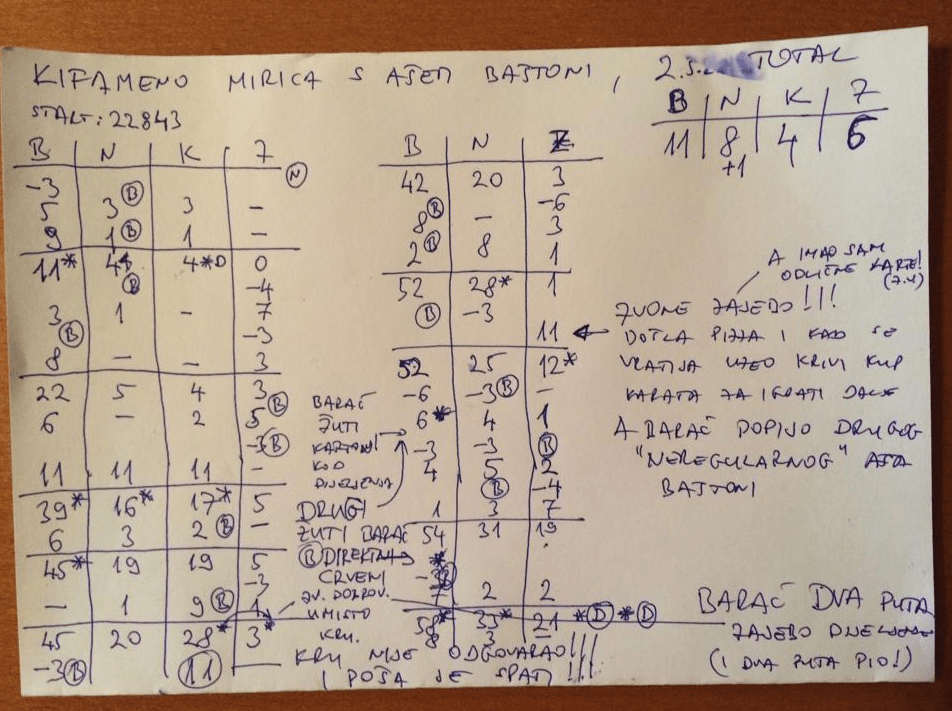 KIFAMENO MIRICA S AŠEM BAŠTONI, 2.5. TOTAL
START: 22843
B | N | K | 7
11 | 8 | 4 | 6
+1
B | N | K | 7
N
-3
5 | 3 B | 3 | -
9 | 1 B | 1 | -
11* | 4 | 4*D | 0
B | -4
3 | 1 | - | 7
B | -3
8 | - | - | 3
22 | 5 | 4 | 3
6 | - | 2 | 5 B
-3 B
11 | 11 | 11 | -
39* | 16* | 17* | 5
6 | 3 | 2 B | -
45* | 19 | 19 | 5
-3
- | 1 | 9 B | 1
45 | 20 | 28* | 3*
-3 B | 11
B | N | Z
42 | 20 | 3
-6
8 B | - | 3
2 B | 8 | 1
52 | 28* | 1
B | -3
11
52 | 25 | 12*
-6 | -3 B | -
6* | 4 | 1
-3 | -3 | B
4 | 5 | 2
B | -4
1 | 3 | 7
54 | 31 | 19
*
7 | 2 | 2
58* | 33* | 21 *D *D
8 | 3
BARAĆ
ŽUTI
KARTONI
KOD
DIJELJENJA
DRUGI
ŽUTI BARAĆ
B DIREKTAN
CRVENI
ZV. DOBROV.
UMISTO
KRU.
KRU NIJE ODGOVARAO!!!
I POŠA JE SPATI!!!
A IMAO SAM
ODLIČNE KARTE!
ZVONE ZAJEBO!!!
DOTLA PIZZA I KAD SE
VRATIJA UZEO KRIVI KUP
KARATA ZA IGRATI DALJE
A BARAĆ POPIJO DRUGOG
"NEREGULARNOG" AŠA
BAŠTONI
BARAĆ DVA PUTA
ZAJEBO DIJELJENJE
(I DVA PUTA PIO!)